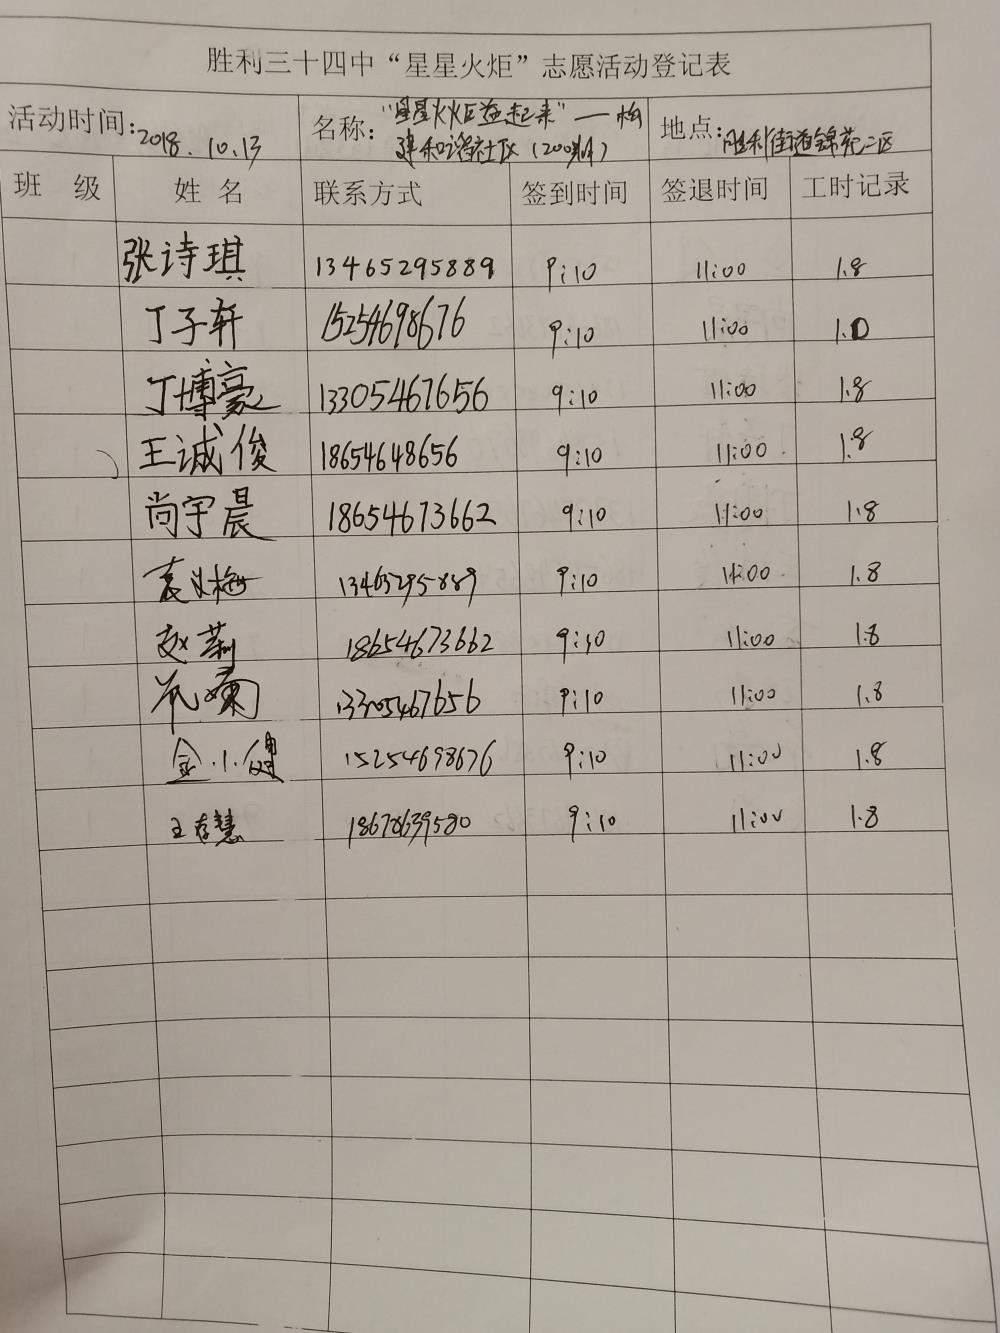 胜利三十四中“星星火炬”志愿活动登记表
活动时间: 2018.10.13 名称: “星星火炬益起来”——构 地点: 胜利街道锦苑二区
建和谐社区
班 级 姓 名 联系方式 签到时间 签退时间 工时记录
张诗琪 13465295889 9:10 11:00 1.8
丁子轩 15254698676 9:10 11:00 1.0
丁博豪 13305467656 9:10 11:00 1.8
王诚俊 18654648656 9:10 11:00 1.8
尚宇晨 18654673662 9:10 11:00 1.8
袁 梅 13465295889 9:10 11:00 1.8
赵莉 18654673662 9:10 11:00 1.8
13305467656 9:10 11:00 1.8
金小健 15254698676 9:10 11:00 1.8
王春慧 18678639580 9:10 11:00 1.8